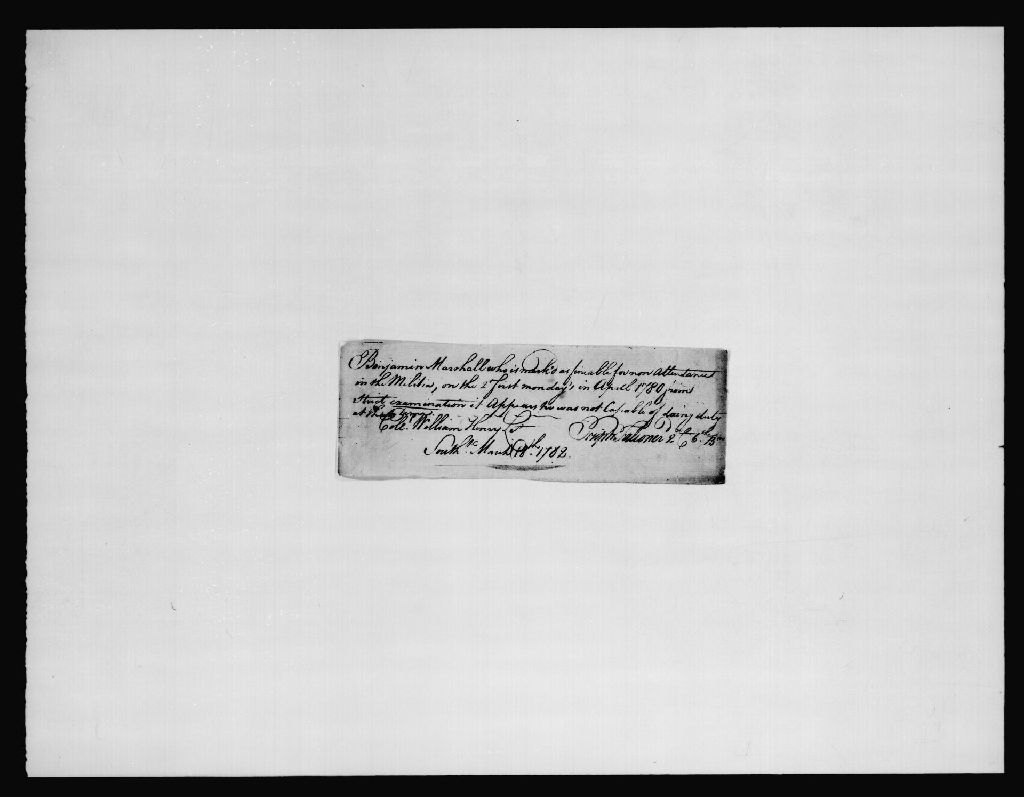 Benjamin Marshall who is mark'd as fineable for non Attendance
in the Militia, on the 2 first monday's in April 1780, from
Strict examenation it Appears he was not Capable of doing duty
at that time.
Coll. William Henry Lt
Joseph 2d Lt 6th Bn
South. March 18th. 1782.